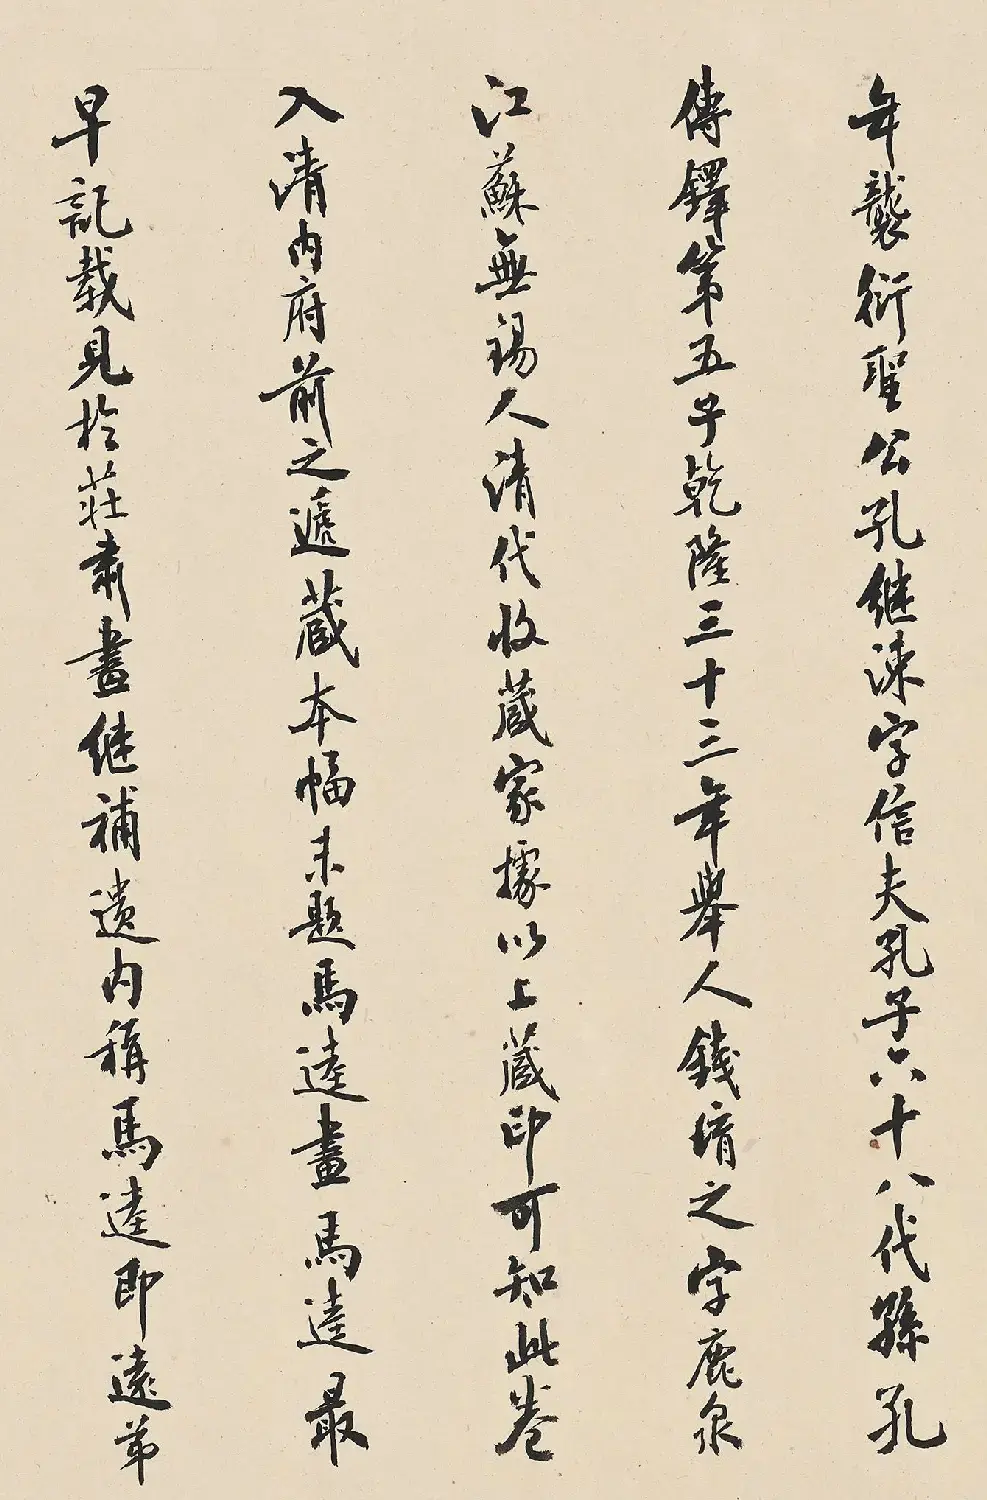 年襲衍聖公孔继涑字信夫孔子六十八代孫孔
傳鐸第五子乾隆三十三年舉人錢堉之字鹿泉
江蘇無錫人清代收蔵家據以上蔵印可知此卷
入清内府前之遞蔵本幅未題馬逵畫馬逵最
早記載見於莊肅畫继補遺内稱馬逵即遠弟